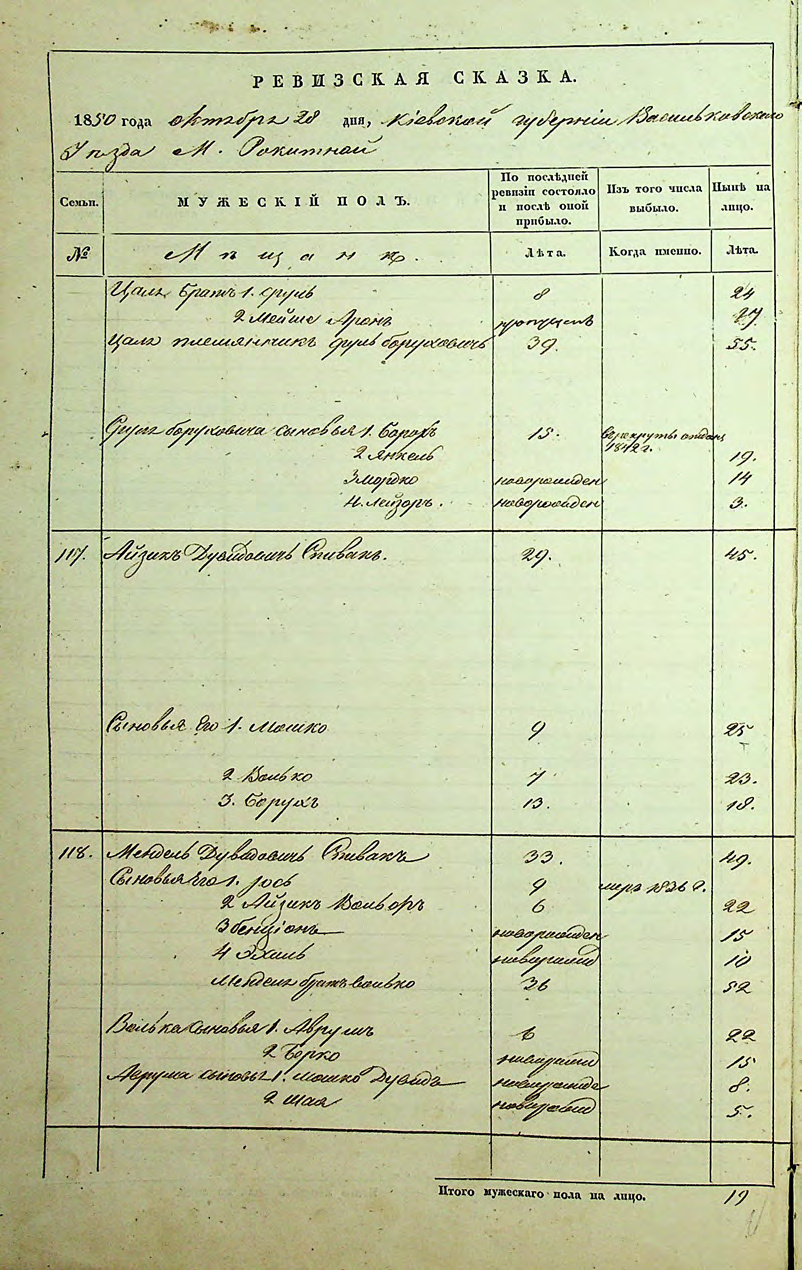 РЕВИЗСКАЯ СКАЗКА.
1850 года октября 28 дня, Кіевской губерніи Васильковского
Уѣзда М. Рокитной
Семьи.
МУЖЕСКІЙ ПОЛЪ.
По послѣдней ревизіи состояло и послѣ оной прибыло.
Изъ того числа выбыло.
Нынѣ на лицо.
№ Мѣщанъ. Лѣта. Когда именно. Лѣта.
Цаля братъ 1. Сруль 8 24
2 Мейше Аронъ пропущенъ 27
Цаля племянникъ Сруль Боруховичъ 39. 55.
Сруля Боруховича сыновья 1. Борохъ 15. въ рекруты отданъ 1842 г.
2 Янкель 19.
3 Мордко новорожден 14
4. Лейзоръ. новорожден 3.
117. Айзикъ Дувидовичъ Спивакъ. 29. 45.
Сыновья Его 1. Мошко 9 25
2 Волько 7 23.
3. Борухъ 13. 18.
118. Мендель Дувидовичъ Спивакъ 33. 49.
Сыновья Его 1. Іось 9 умеръ 1836 г.
2 Айзикъ Вольфръ 6 22
3 Бенціонъ новорожден 15
4 Эхиль новорожд 10
Менделя братъ Волько 36 52
Волька сыновья 1. Аврумъ 6 22
2 Берко новорожд 15
Аврума сыновья 1. Мошко Дувидъ новорожде 8.
2 Шая новорожд 5.
Итого мужескаго пола на лицо. 19